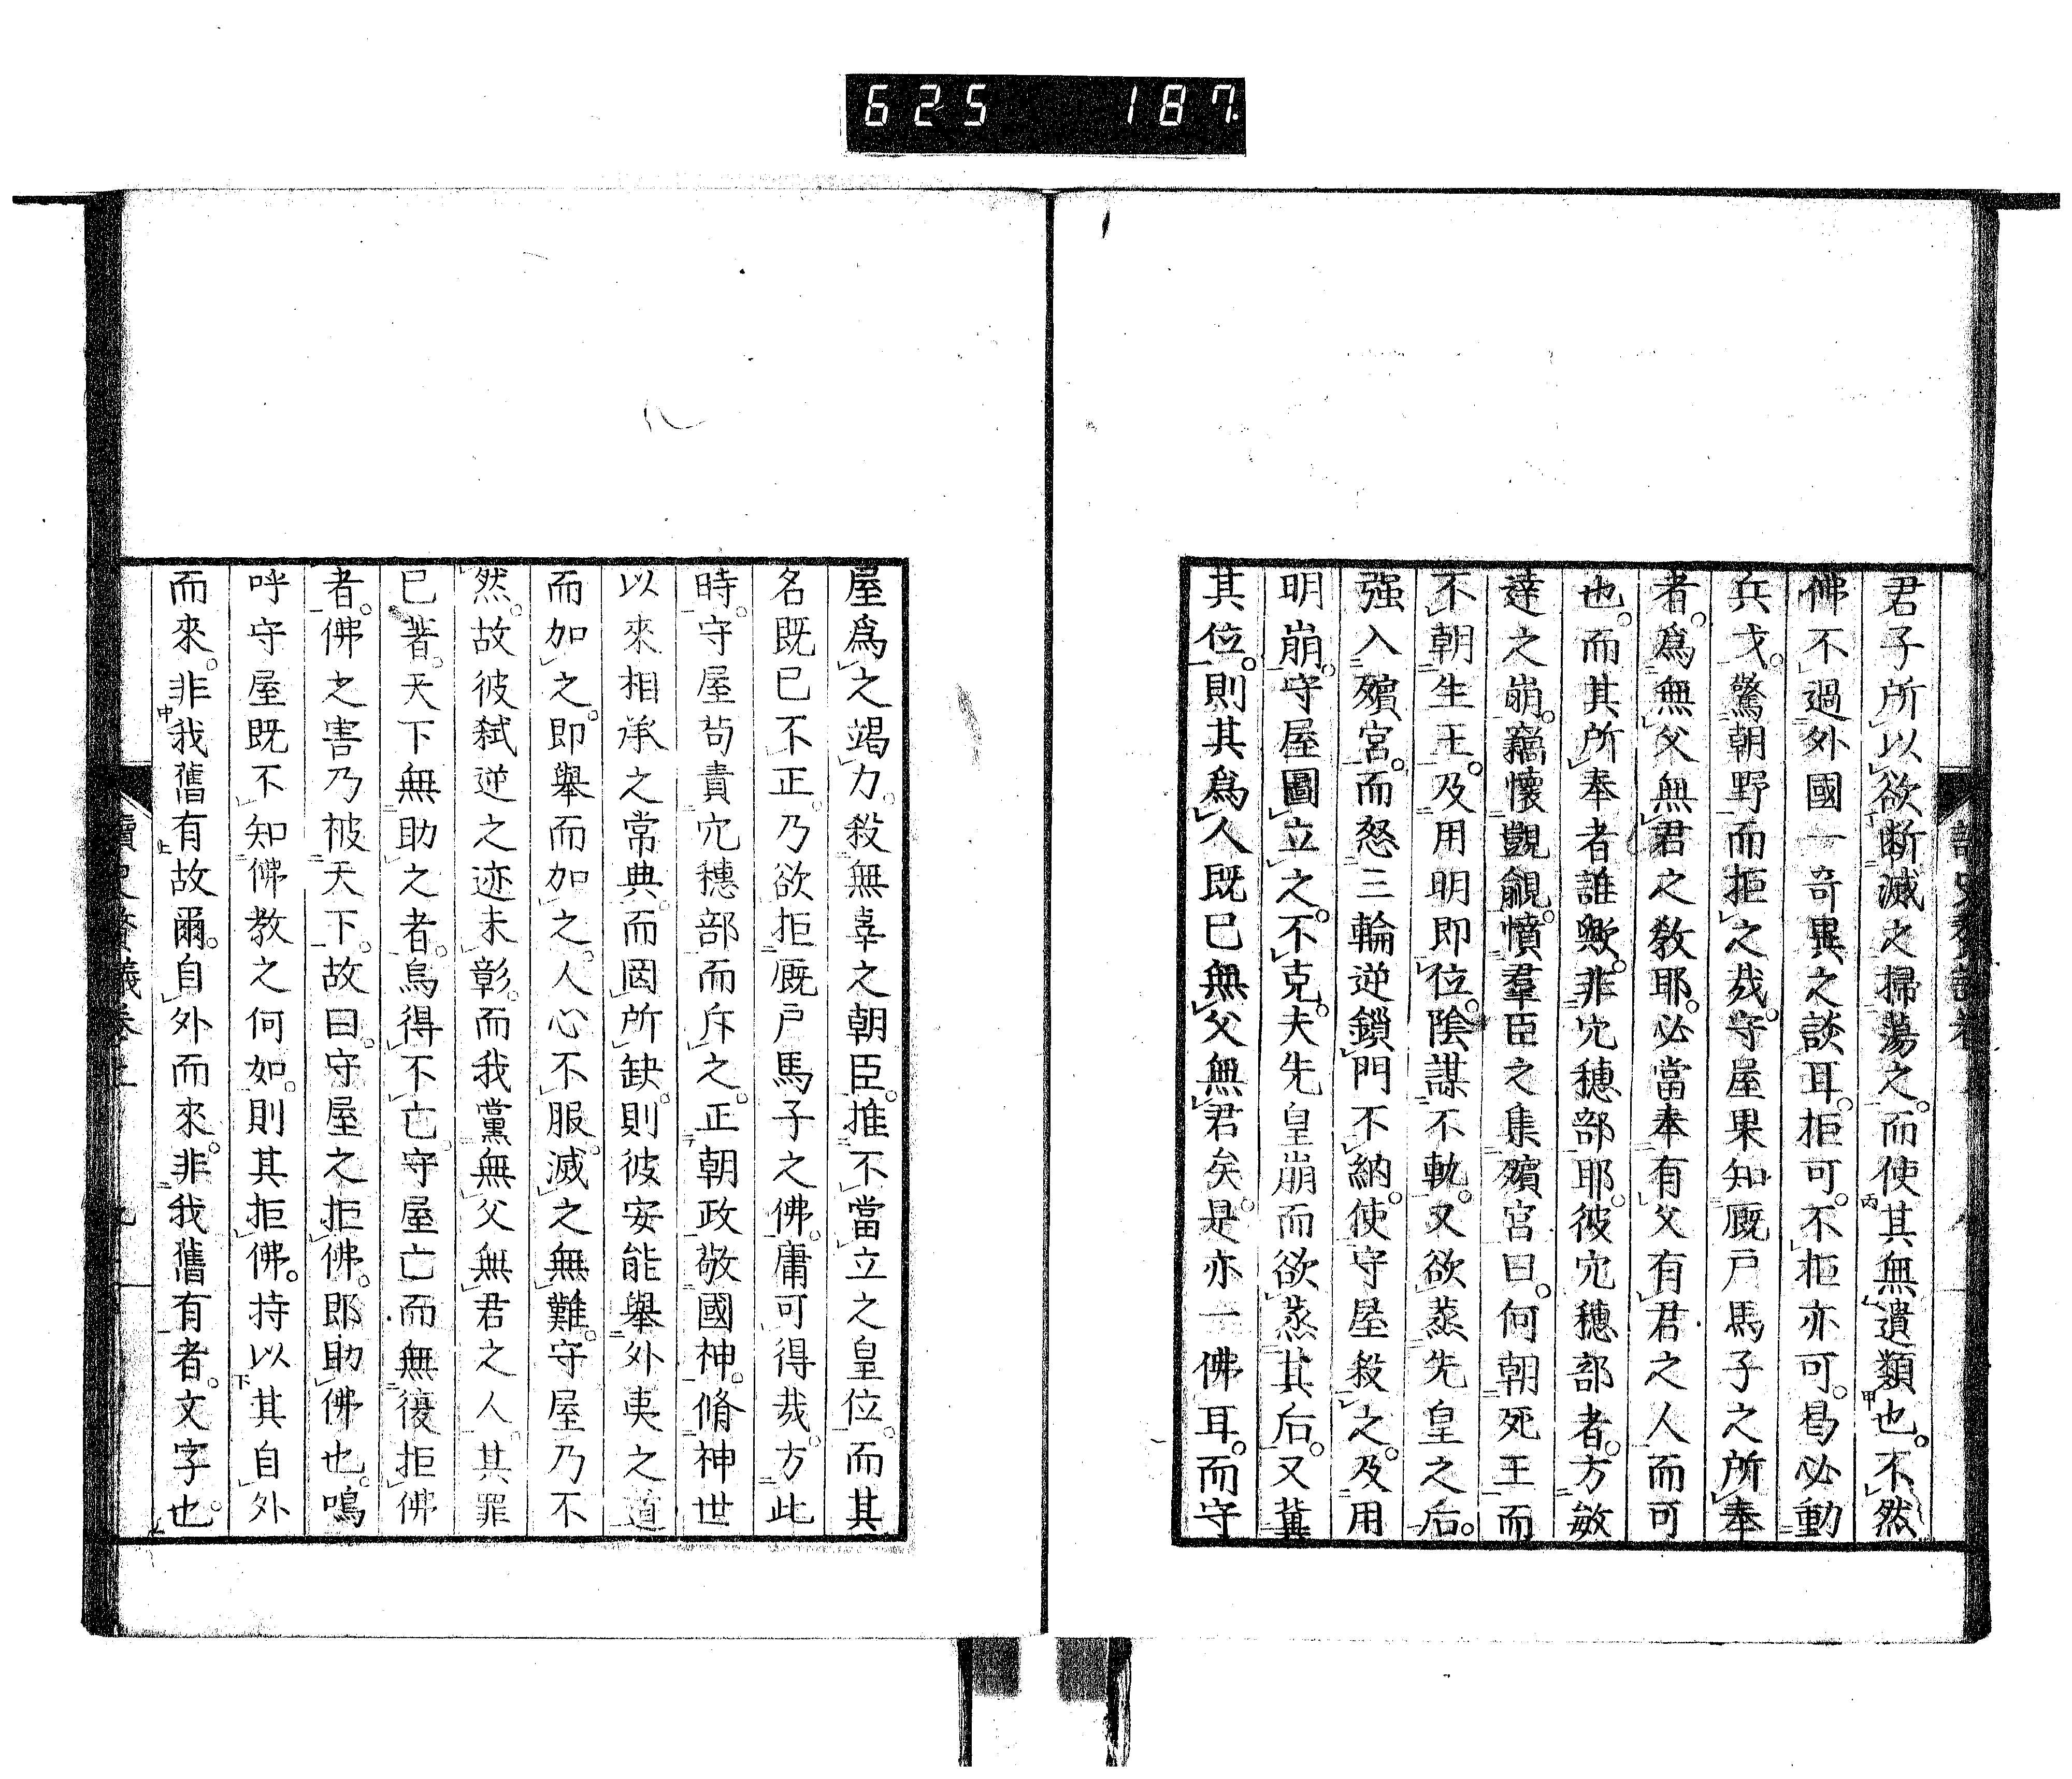 625 187
君子所以欲断滅之掃蕩之。而使其無遺類也。不然
佛不過外國一奇異之談耳。拒可。不拒亦可。曷必動
兵戈。驚朝野而拒之哉。守屋果知厩戸馬子之所奉
者。爲無父無君之敎耶。必當奉有父有君之人而可
也。而其所奉者誰歟。非穴穗部耶。彼穴穗部者。方敏
達之崩。竊懷覬覦。憤羣臣之集殯宮曰。何朝死王而
不朝生王。及用明即位。陰謀不軌。又欲蒸先皇之后。
强入殯宮。而怒三輪逆鎖門不納。使守屋殺之。及用
明崩。守屋圖立之。不克。夫先皇崩而欲蒸其后。又冀
其位。則其爲人既已無父無君矣。是亦一佛耳。而守
屋爲之竭力。殺無辜之朝臣。推不當立之皇位。而其
名既已不正。乃欲拒厩戸馬子之佛。庸可得哉。方此
時。守屋苟責穴穗部而斥之。正朝政。敬國神。脩神世
以來相承之常典。而因所缺。則彼安能舉外夷之道
而加之。即舉而加之。人心不服。滅之無難。守屋乃不
然。故彼弑逆之迹未彰。而我黨無父無君之人。其罪
已著。天下無助之者。烏得不亡。守屋亡而無復拒佛
者。佛之害乃被天下。故曰。守屋之拒佛。即助佛也。鳴
呼守屋既不知佛敎之何如。則其拒佛。持以其自外
而來。非我舊有故爾。自外而來。非我舊有者。文字也。
讀史贅議卷上 九